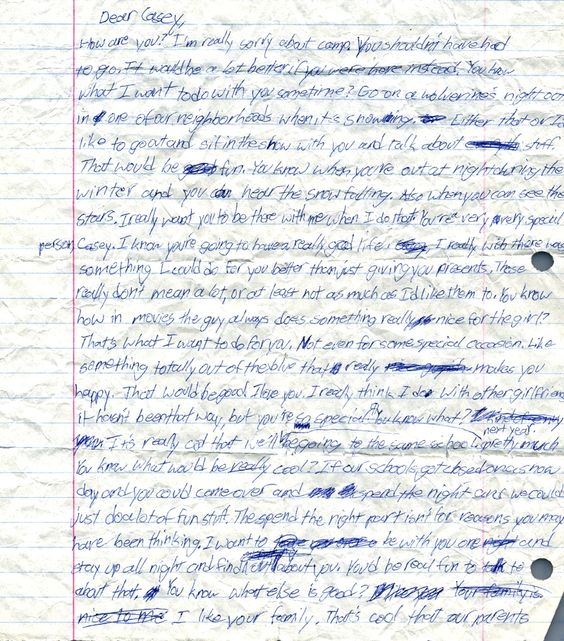 Dear Casey,
How are you? I'm really sorry about camp. You shouldn't have had
to go. It would be a lot better if you were here instead. You know
what I want to do with you sometime? Go on a wolverine's night out
in one of our neighborhoods when it's snowing. Either that or I'd
like to go out and sit in the snow with you and talk about stuff.
That would be fun. You know when you're out at night during the
winter and you can hear the snow falling. Also when you can see the
stars. I really want you to be there with me when I do that. You're a very very special
person Casey. I know you're going to have a really good life. I really wish there was
something I could do for you better than just giving you presents. Those
really don't mean a lot, or at least not as much as I'd like them to. You know
how in movies the guy always does something really nice for the girl?
That's what I want to do for you. Not even for some special occasion. Like
something totally out of the blue that really makes you
happy. That would be good. I love you. I really think I do with other girlfriends
it hasn't been that way, but you're so special. You know what?
It's really cool that we'll be going to the same school next year. pretty much
You know what would be really cool? If our schools got closed on a snow
day and you could come over and spend the night and we could
just do a lot of fun stuff. The spend the night part isn't for reasons you may
have been thinking. I want to be with you and
stay up all night and find out about you. You'd be real fun to talk to
about that. You know what else is good? Your family is
nice to me I like your family. That's cool that our parents